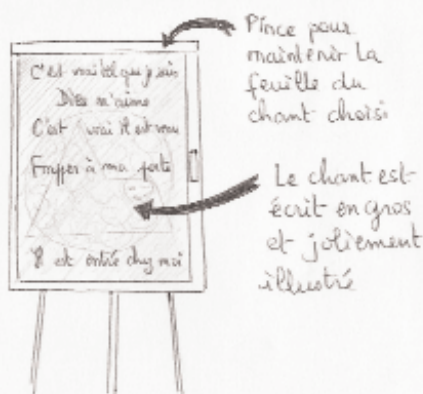 C'est vrai tel que je suis
Dieu m'aime
C'est vrai il est venu
Frapper à ma porte
Il est entré chez moi
Pince pour
maintenir la
feuille du
chant choisi
Le chant est
écrit en gros
et joliement
illustré